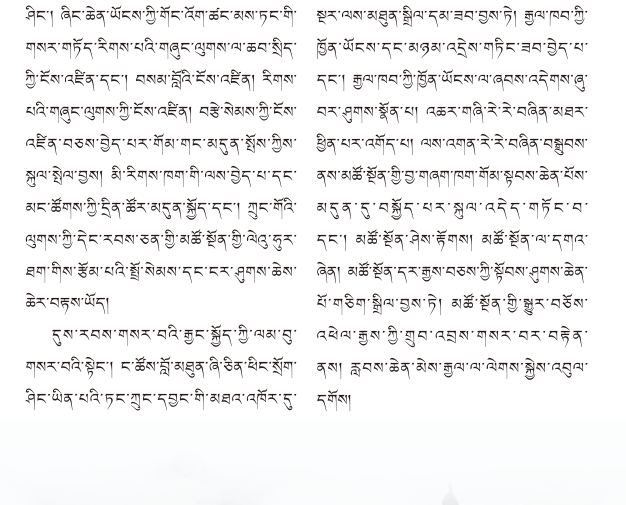 ཤིང་། ཞིང་ཆེན་ཡོངས་ཀྱི་གོང་འོག་ཚང་མས་ཏང་གི་
གསར་གཏོད་རིགས་པའི་གཞུང་ལུགས་ལ་ཆབ་སྲིད་
ཀྱི་ངོས་འཛིན་དང་། བསམ་བློའི་ངོས་འཛིན། རིགས་
པའི་གཞུང་ལུགས་ཀྱི་ངོས་འཛིན། བརྩེ་སེམས་ཀྱི་ངོས་
འཛིན་བཅས་བྱེད་པར་གོམ་གང་མདུན་སྤོས་ཀྱིས་
སྐུལ་སྤེལ་བྱས། མི་རིགས་ཁག་གི་ལས་བྱེད་པ་དང་
མང་ཚོགས་ཀྱི་དྲིན་ཚོར་མདུན་སྐྱོད་དང་། ཀྲུང་གོའི་
ལུགས་ཀྱི་དེང་རབས་ཅན་གྱི་མཚོ་སྔོན་གྱི་ལེའུ་ཧུར་
ཐག་གིས་རྩོམ་པའི་སྤྲོ་སེམས་དང་ངར་ཤུགས་ཆེས་
ཆེར་བརྟས་ཡོད།
དུས་རབས་གསར་བའི་རྒྱང་སྐྱོད་ཀྱི་ལམ་བུ་
གསར་བའི་སྟེང་། ང་ཚོས་བློ་མཐུན་ཞི་ཅིན་ཕིང་སྲོག་
ཤིང་ཡིན་པའི་ཏང་ཀྲུང་དབྱང་གི་མཐའ་འཁོར་དུ་
སྔར་ལས་མཐུན་སྒྲིལ་དམ་ཟབ་བྱས་ཏེ། རྒྱལ་ཁབ་ཀྱི་
ཁྱོན་ཡོངས་དང་མཉམ་འདྲེས་གཏིང་ཟབ་བྱེད་པ་
དང་། རྒྱལ་ཁབ་ཀྱི་ཁྱོན་ཡོངས་ལ་ཞབས་འདེགས་ཞུ་
བར་ཤུགས་སྣོན་པ། འཆར་གཞི་རེ་རེ་བཞིན་མཐར་
ཕྱིན་པར་འགོད་པ། ལས་འགན་རེ་རེ་བཞིན་བསྒྲུབས་
ནས་མཚོ་སྔོན་གྱི་བྱ་གཞག་ཁག་གོམ་སྟབས་ཆེན་པོས་
མདུན་དུ་བསྐྱོད་པར་སྐུལ་འདེད་གཏོང་བ་
དང་། མཚོ་སྔོན་ཤེས་རྟོགས། མཚོ་སྔོན་ལ་དགའ་
ཞེན། མཚོ་སྔོན་དར་རྒྱས་བཅས་ཀྱི་སྟོབས་ཤུགས་ཆེན་
པོ་གཅིག་སྒྲིལ་བྱས་ཏེ། མཚོ་སྔོན་གྱི་སྒྱུར་བཅོས་
འཕེལ་རྒྱས་ཀྱི་གྲུབ་འབྲས་གསར་བར་བརྟེན་
ནས། རླབས་ཆེན་མེས་རྒྱལ་ལ་ལེགས་སྐྱེས་འབུལ་
དགོས།